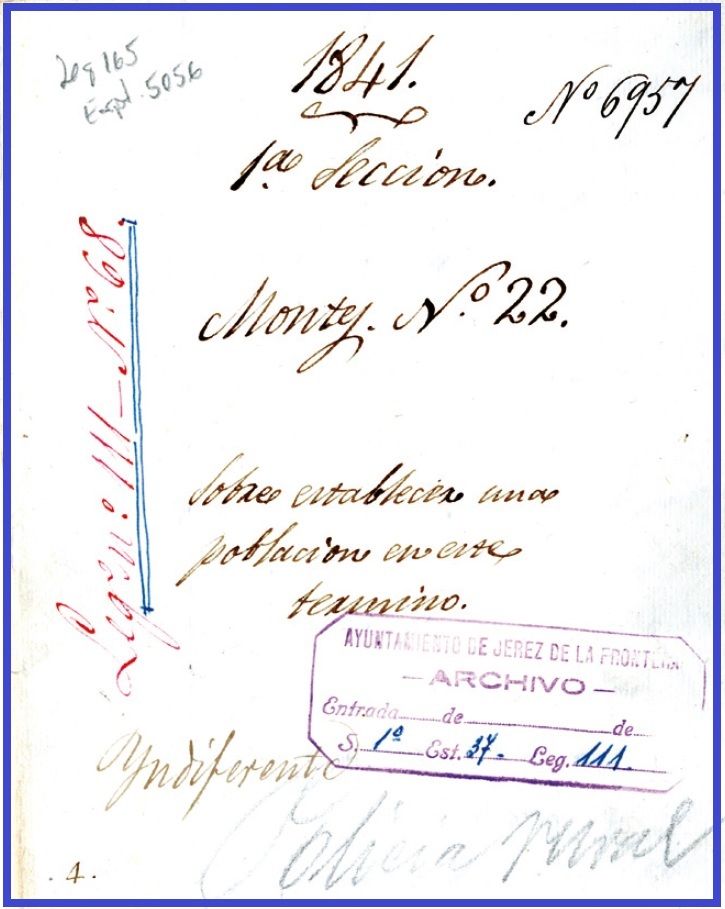 Leg 165
Expt. 5056
1841.
Nº 6957
1ª Seccion.
Legº nº 111 - Nº 68.
Montes. Nº 22.
Sobre establecer una
poblacion en este
termino.
AYUNTAMIENTO DE JEREZ DE LA FRONTERA
— ARCHIVO —
Entrada de de
S. 1º Est. 37. Leg. 111.
Yndiferente
Policia rural
. 4 .